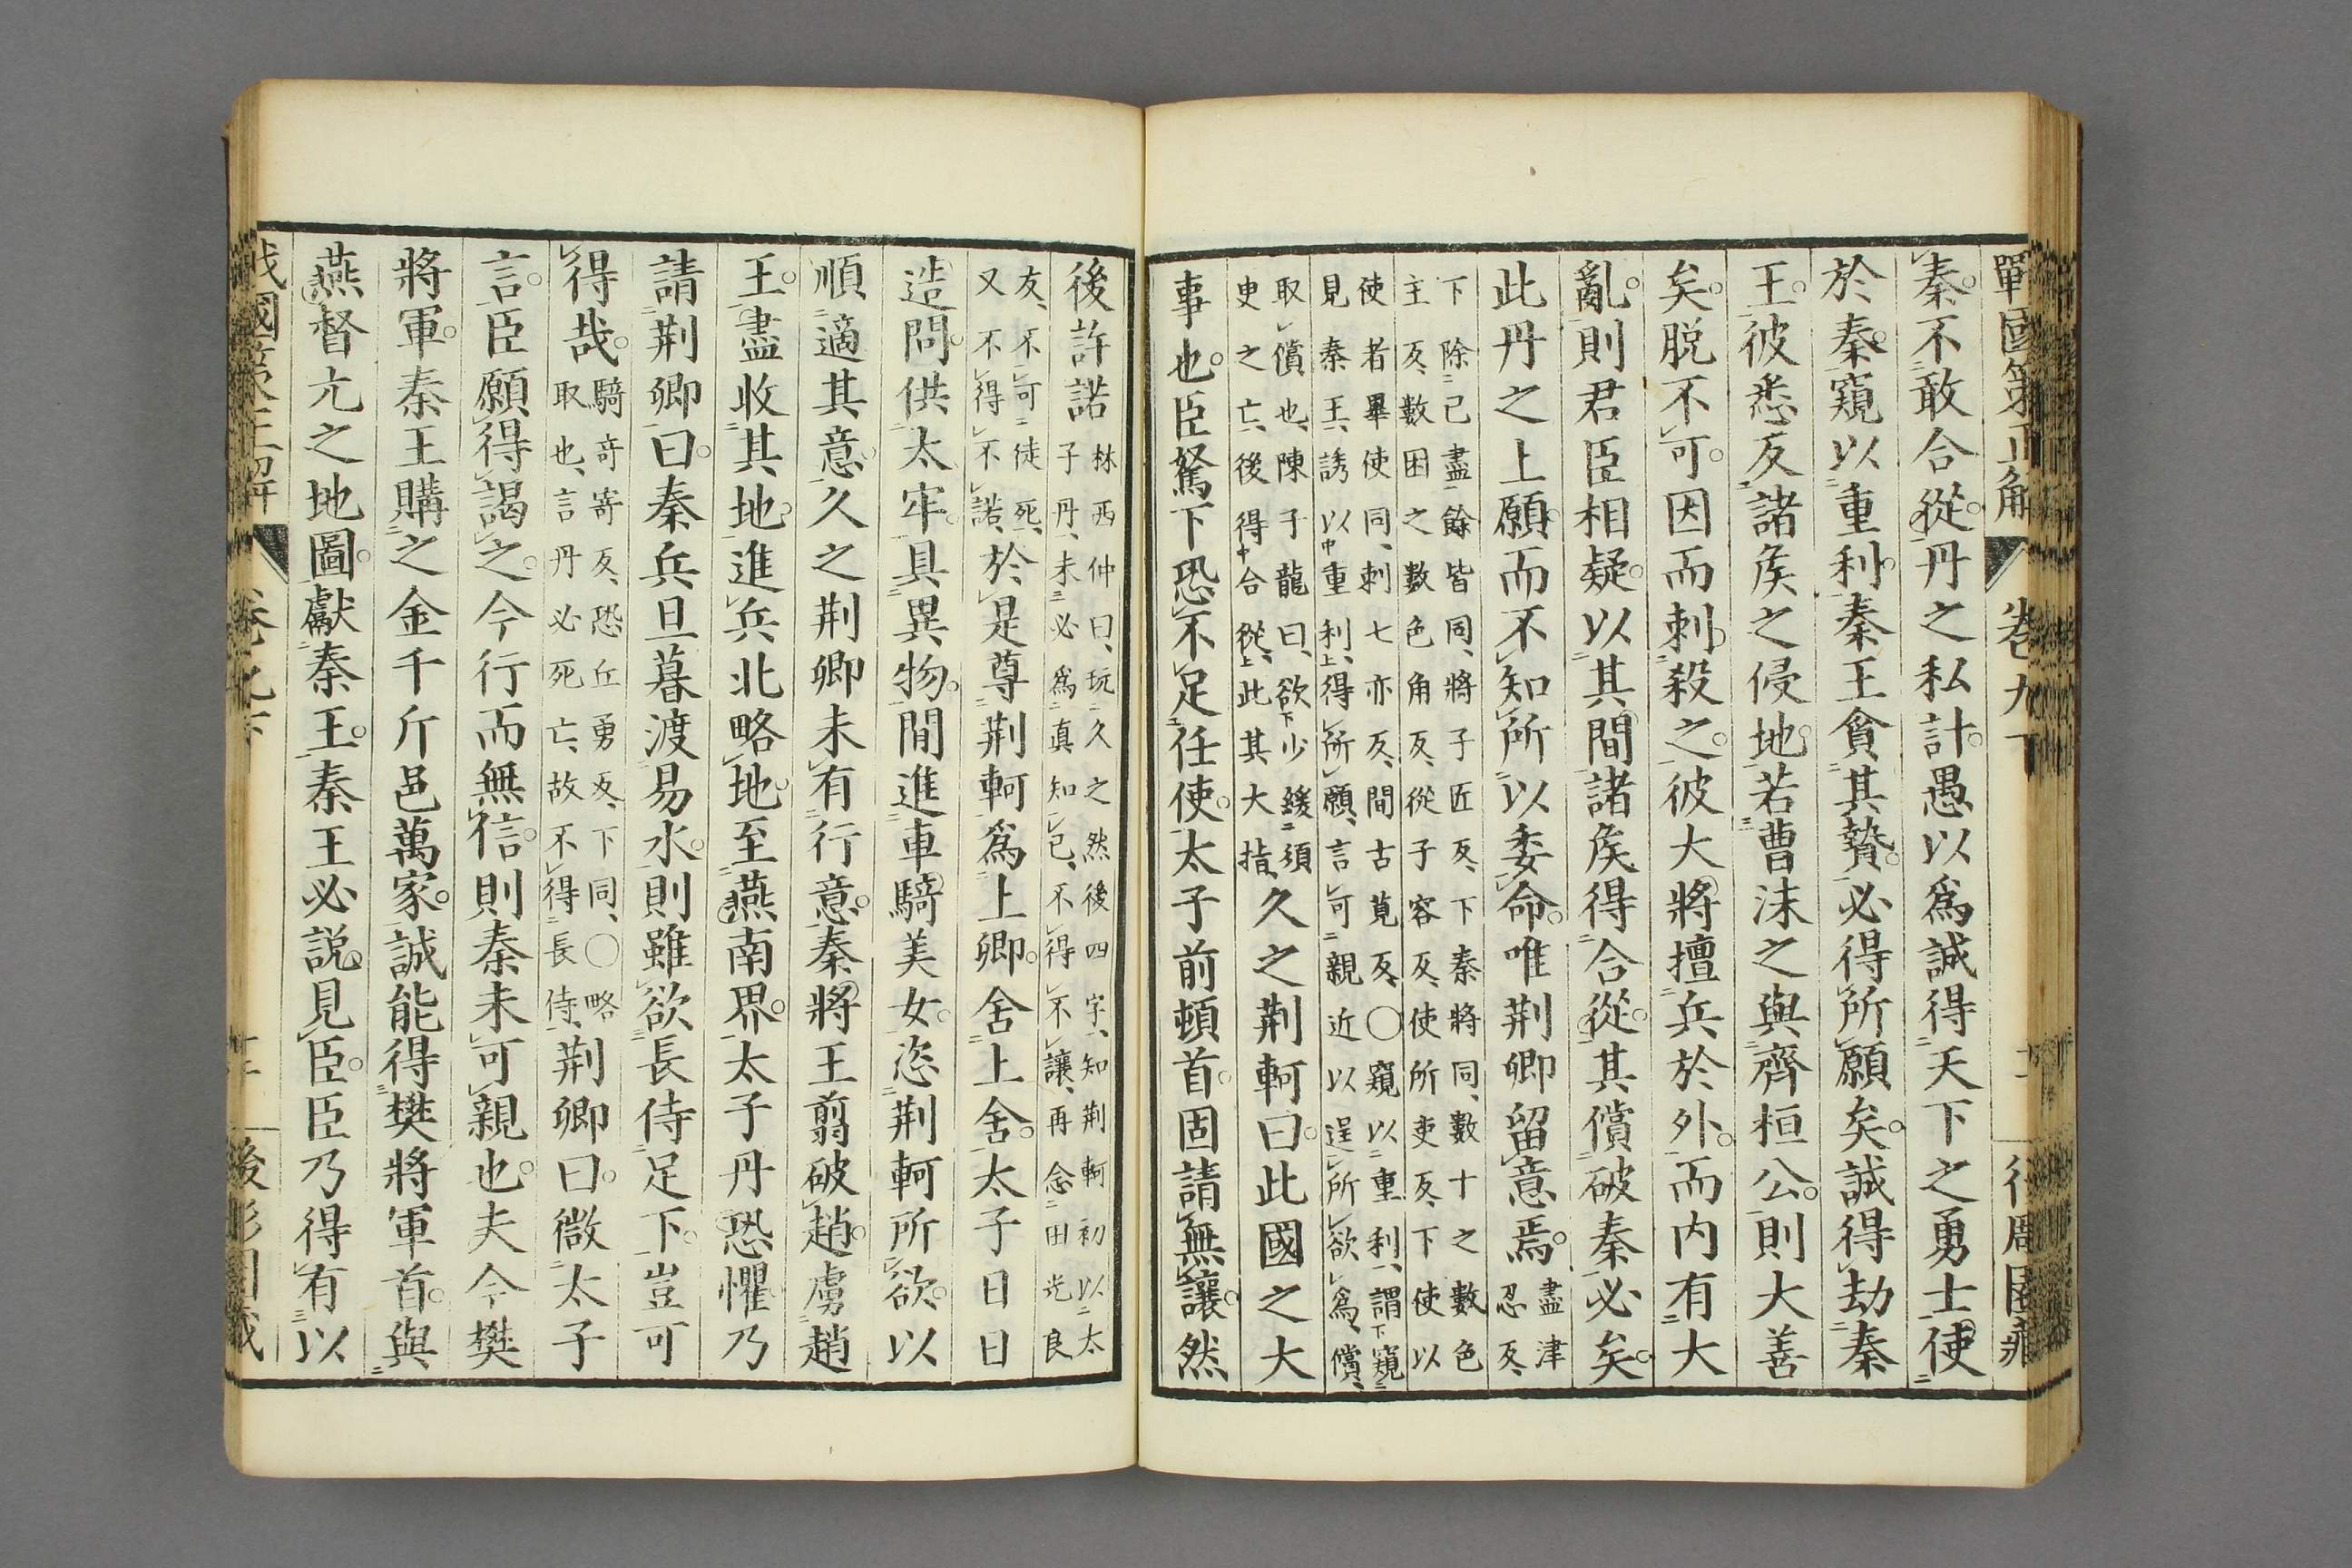 戰國策正解 卷九下
秦不敢合從丹之私計愚以爲誠得天下之勇士使
於秦窺以重利秦王貪其贄必得所願矣誠得劫秦
王彼悉反諸矦之侵地若曹沫之與齊桓公則大善
矣脱不可因而刺殺之彼大將擅兵於外而内有大
亂則君臣相疑以其間諸矦得合從其償破秦必矣
此丹之上願而不知所以委命唯荆卿留意焉盡津忍反、
下除已盡餘皆同、將子匠反、下秦將同、數十之數色
主反、數困之數色角反、從子容反、使所吏反、下使以
使者畢使同、刺七亦反、間古莧反、〇窺以重利、謂下窺
見秦王、誘以中重利上、得所願、言可可親近以逞所欲爲、償、
取償也、陳子龍曰、欲下少緩須
史之亡、後得中合從上、此其大指、久之荆軻曰此國之大
事也臣駑下恐不足任使太子前頓首固請無讓然
後許諾林西仲曰、玩久之然後四字、知荆軻初以太
子丹、未必爲眞知已、不得不讓、再念田光良
友、不可徒死、
又不得不諾、於是尊荆軻爲上卿舍上舍太子日日
造問供太牢具異物間進車騎美女恣荆軻所欲以
順適其意久之荆卿未有行意秦將王翦破趙虜趙
王盡收其地進兵北略地至燕南界太子丹恐懼乃
請荆卿曰秦兵旦暮渡易水則雖欲長侍足下豈可
得哉騎竒寄反、恐丘勇反、下同、〇略
取也、言丹必死亡、故不得長侍、荆卿曰微太子
言臣願得謁之今行而無信則秦未可親也夫今樊
將軍秦王購之金千斤邑萬家誠能得樊將軍首與
燕督亢之地圖獻秦王秦王必説見臣臣乃得有以